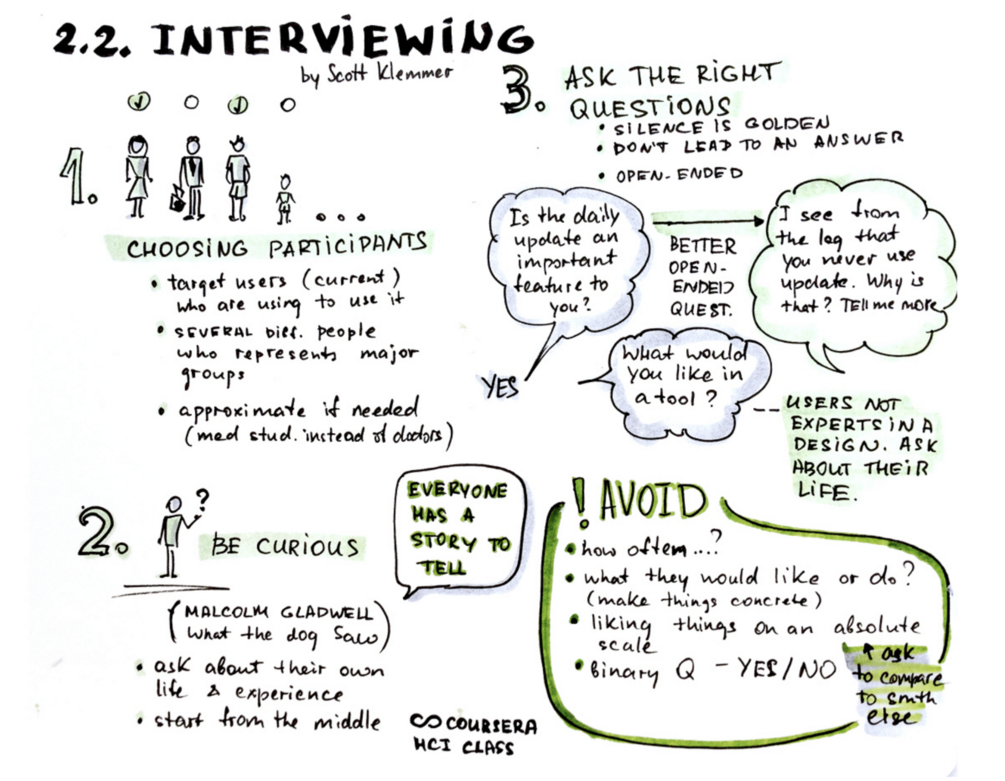 2.2. INTERVIEWING
by Scott Klemmer
1.
CHOOSING PARTICIPANTS
• target users (current)
who are using to use it
• SEVERAL DIFF. people
who represents major
groups
• approximate if needed
(med stud. instead of doctors)
2.
?
BE CURIOUS
(MALCOLM GLADWELL)
What the dog Saw
• ask about their own
life & experience
• start from the middle
EVERYONE
HAS A
STORY TO
TELL
COURSERA
HCI CLASS
3. ASK THE RIGHT
QUESTIONS
• SILENCE IS GOLDEN
• DON'T LEAD TO AN ANSWER
• OPEN-ENDED
Is the daily
update an
important
feature to
you?
YES
BETTER
OPEN-
ENDED
QUEST.
I see from
the log that
you never use
update. Why is
that? Tell me more
What would
you like in
a tool?
USERS NOT
EXPERTS IN A
DESIGN. ASK
ABOUT THEIR
LIFE.
! AVOID
• how often...?
• what they would like or do?
(make things concrete)
• liking things on an absolute
scale
• binary Q – YES/NO
↑ ask
to compare
to smth
else